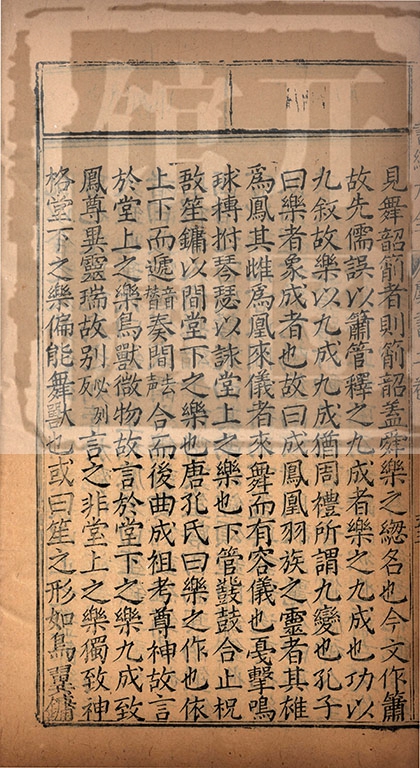 見舞韶箾者則箾韶蓋舜樂之緫名也今文作簫
故先儒誤以簫管釋之九成者樂之九成也功以
九叙故樂以九成九成猶周禮所謂九變也孔子
曰樂者象成者也故曰成鳳凰羽族之靈者其雄
爲鳳其雌爲凰來儀者來舞而有容儀也戞擊鳴
球搏拊琴瑟以詠堂上之樂也下管鼗鼓合止柷
敔笙鏞以間堂下之樂也唐孔氏曰樂之作也依
上下而遞奏間合而後曲成祖考尊神故言
於堂上之樂鳥獸微物故言於堂下之樂九成致
鳳尊異靈瑞故别言之非堂上之樂獨致神
格堂下之樂偏能舞獸也或曰笙之形如鳥翼鏞